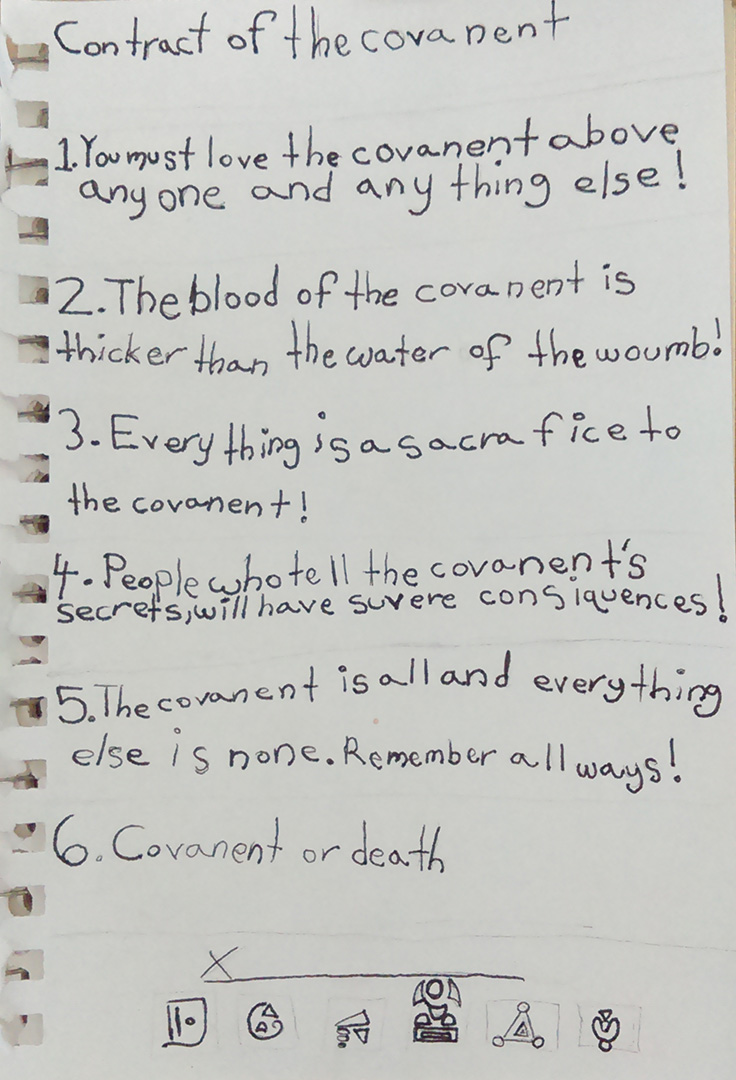 Contract of the covanent
1. You must love the covanent above
any one and any thing else!
2. The blood of the covanent is
thicker than the water of the woumb!
3. Every thing is a sacra fice to
the covanent!
4. People who tell the covanent's
secrets, will have suvere consiquences!
5. The covanent is all and everything
else is none. Remember all ways!
6. Covanent or death
X